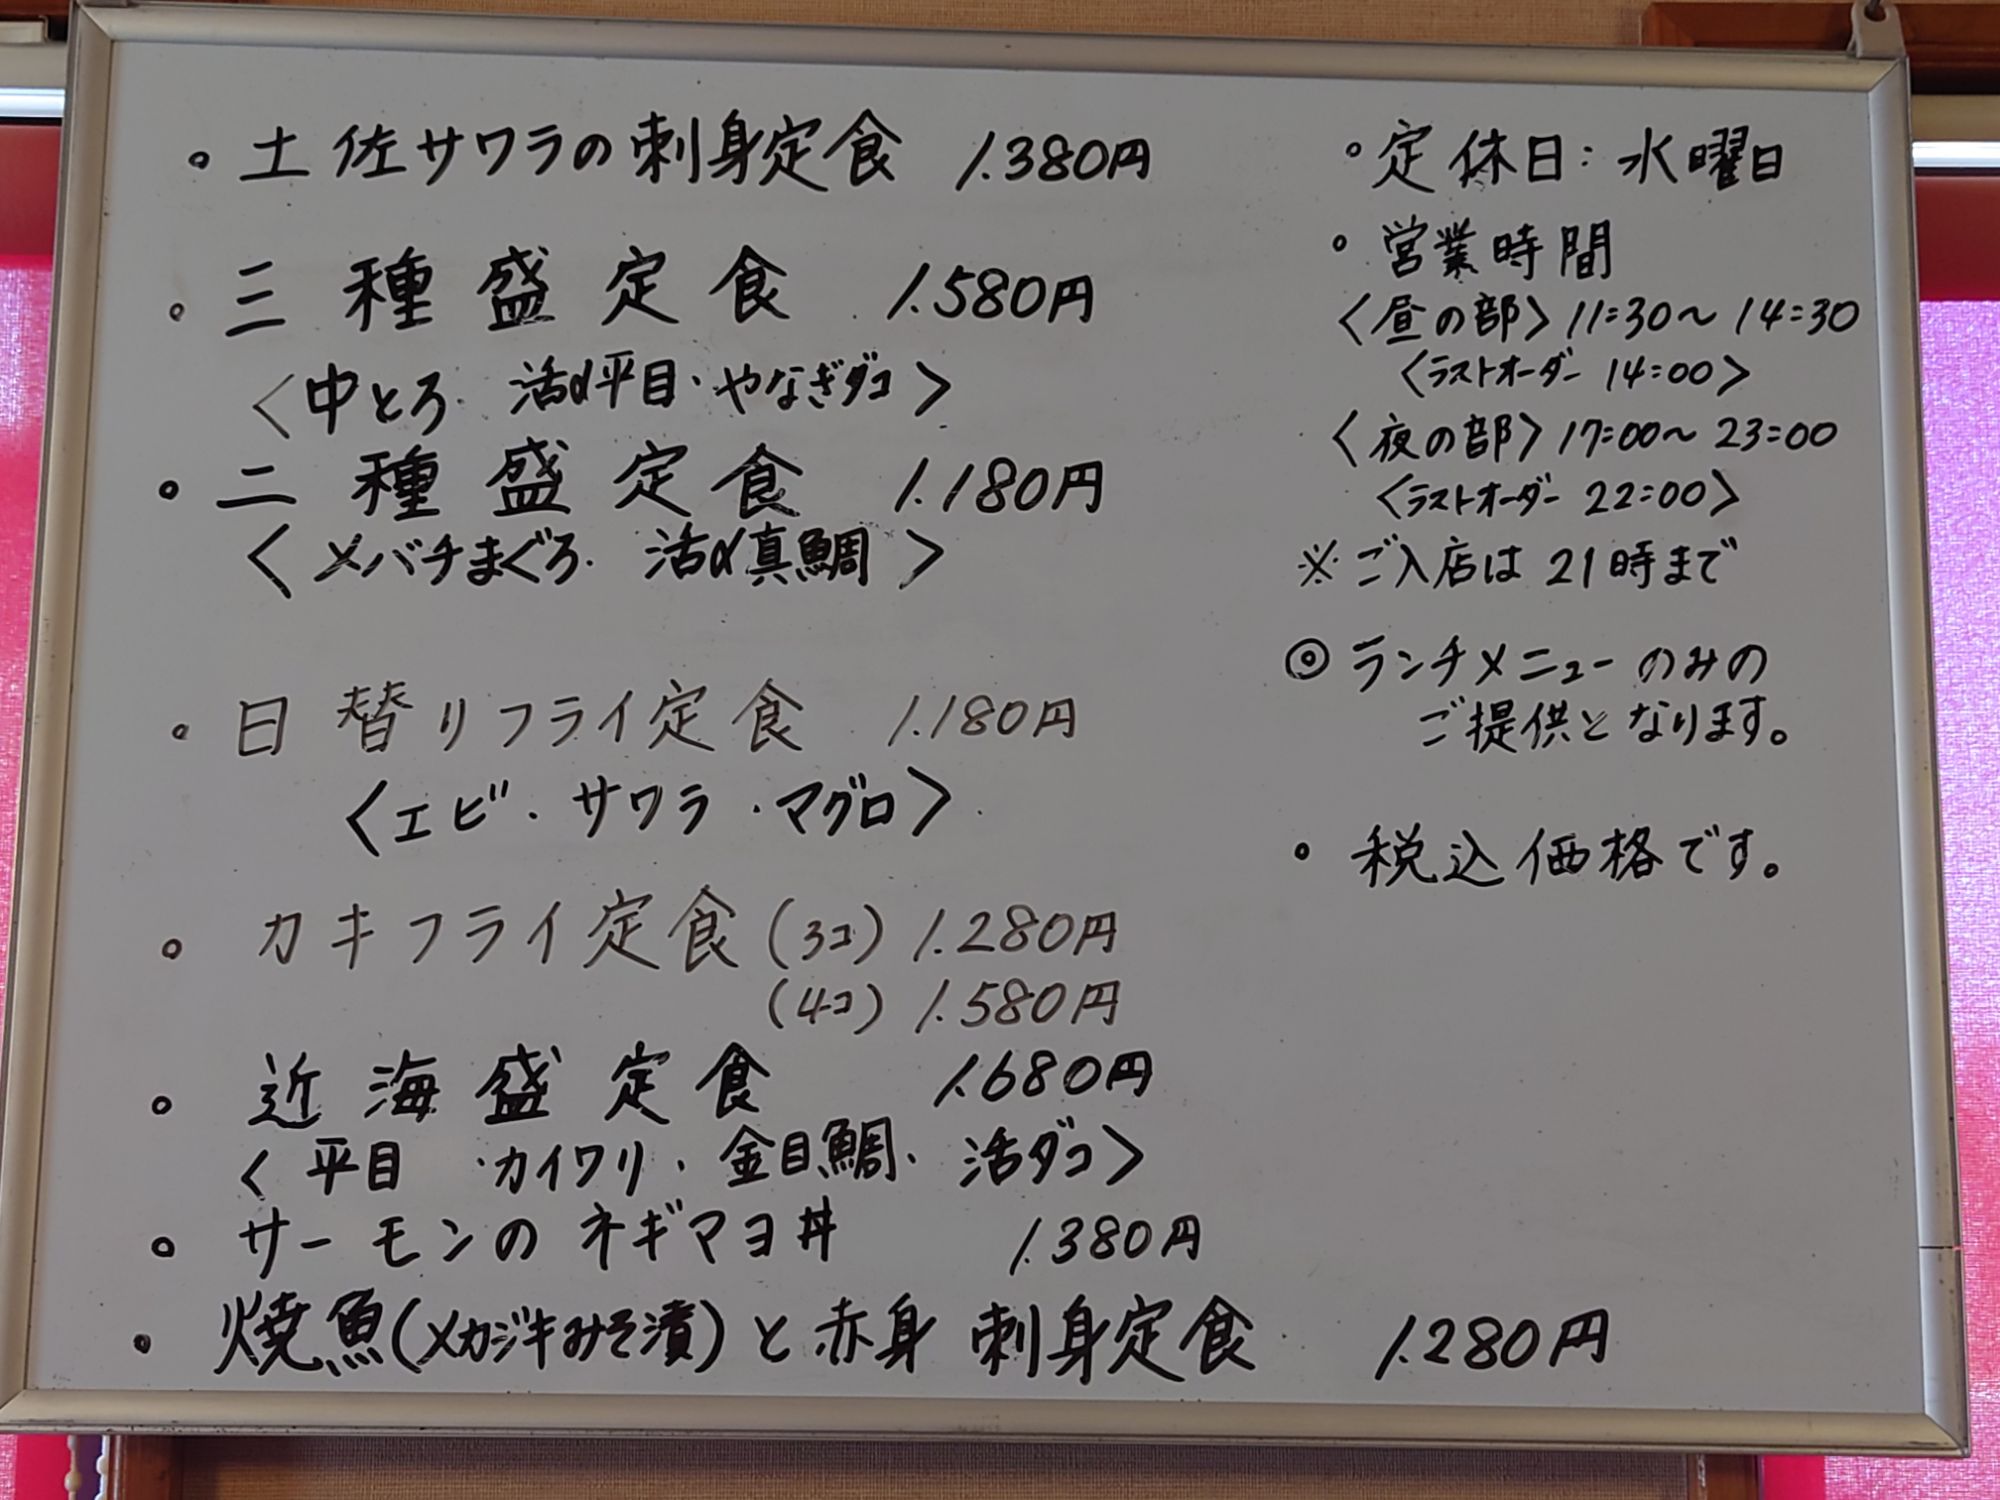 。土佐サワラの刺身定食 1.380円
。三種盛定食 1.580円
〈中とろ. 活〆平目・やなぎダコ〉
。二種盛定食 1.180円
〈メバチまぐろ. 活〆真鯛〉
。日替りフライ定食 1.180円
〈エビ・サワラ・マグロ〉
。カキフライ定食(3コ) 1.280円
(4コ) 1.580円
。近海盛定食 1.680円
〈平目・カイワリ・金目鯛・活ダコ〉
。サーモンのネギマヨ丼 1.380円
。焼魚(メカジキみそ漬)と赤身刺身定食 1.280円
。定休日:水曜日
。営業時間
〈昼の部〉11:30〜14:30
〈ラストオーダー 14:00〉
〈夜の部〉17:00〜23:00
〈ラストオーダー 22:00〉
※ご入店は21時まで
◎ランチメニューのみの
ご提供となります。
。税込価格です。